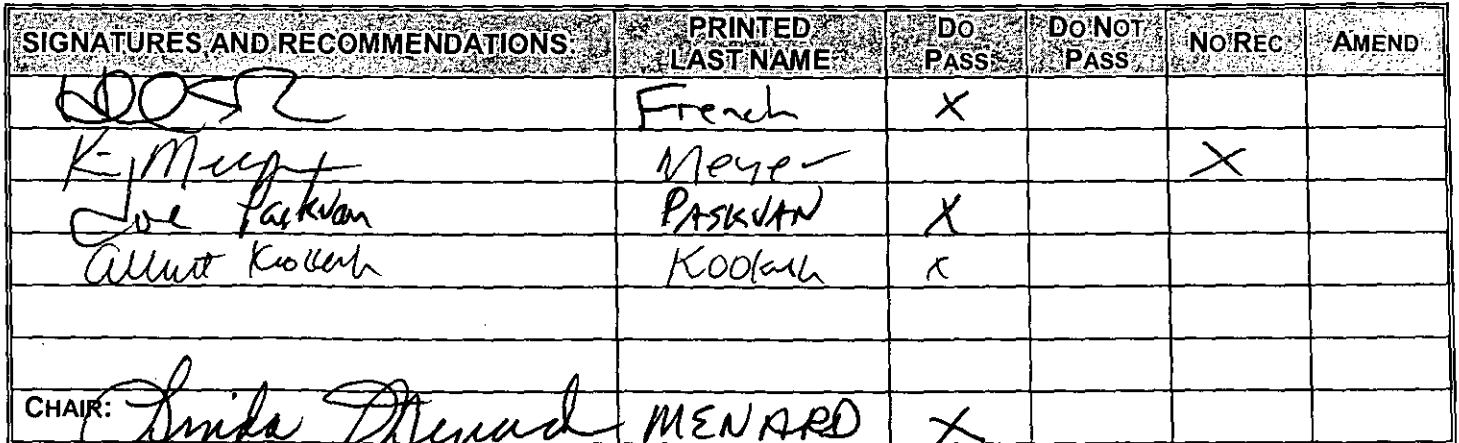 SIGNATURES AND RECOMMENDATIONS: PRINTED LAST NAME DO PASS DO NOT PASS NO REC AMEND
French X
Meyer X
Joe Paskvan PASKVAN X
Albert Kookesh Kookesh x
CHAIR: Linda Menard MENARD X